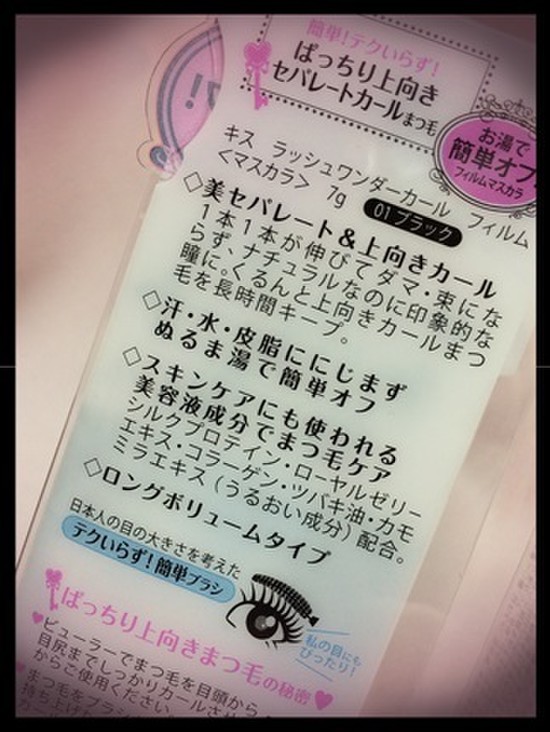 簡単!テクいらず!
ぱっちり上向き
セパレートカールまつ毛
お湯で
簡単オフ
フィルムマスカラ
キス ラッシュワンダーカール フィルム
<マスカラ> 7g
01 ブラック
◇美セパレート&上向きカール
1本1本が伸びてダマ・束にな
らず、ナチュラルなのに印象的な
瞳に。くるんと上向きカールまつ
毛を長時間キープ。
◇汗・水・皮脂ににじまず
ぬるま湯で簡単オフ
◇スキンケアにも使われる
美容液成分でまつ毛ケア
シルクプロテイン・ローヤルゼリー
エキス・コラーゲン・ツバキ油・カモ
ミラエキス(うるおい成分)配合。
◇ロングボリュームタイプ
日本人の目の大きさを考えた
テクいらず!簡単ブラシ
私の目にも
ぴったり!
ぱっちり上向きまつ毛の秘密
ビューラーでまつ毛を目頭から
目尻までしっかりカールさせ
からご使用ください。
まつ毛をブラシ
持ち上げ